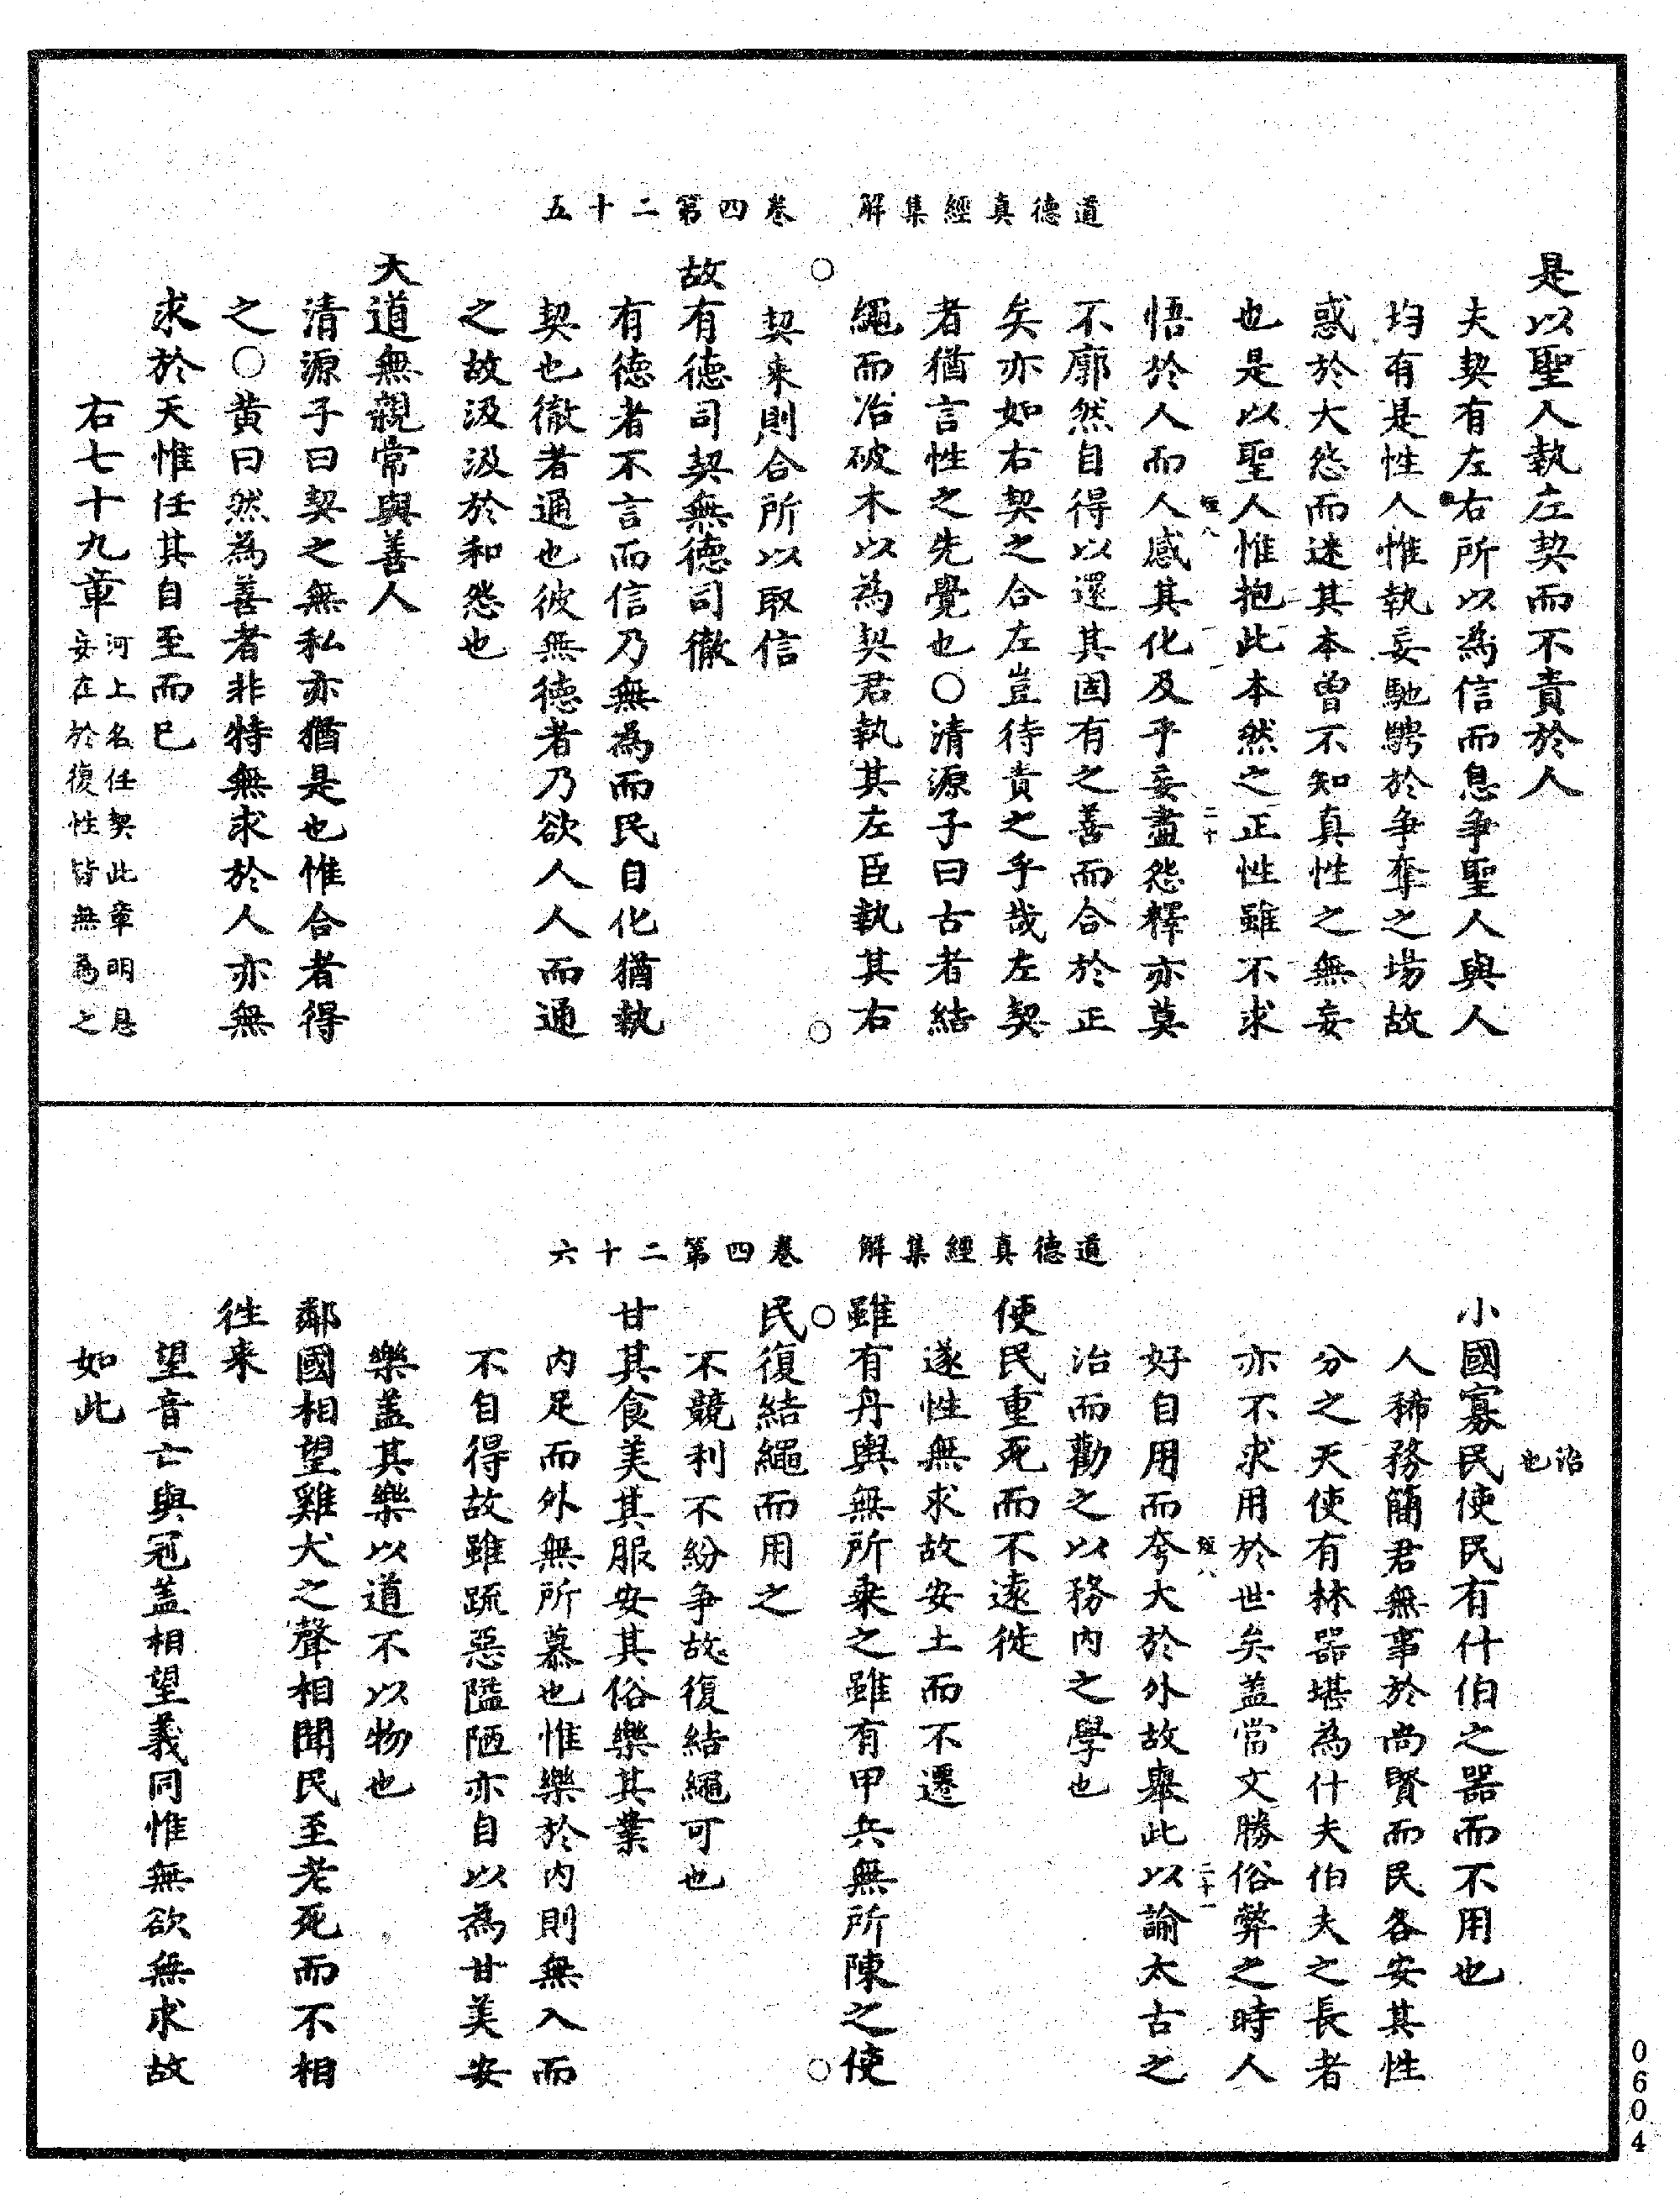 道德真經集解　卷四第二十五
是以聖人執左契而不責於人
夫契有左右所以為信而息爭聖人與人
均有是性人惟執妄馳騁於爭奪之場故
惑於大怨而迷其本曾不知真性之無妄
也是以聖人惟抱此本然之正性雖不求
悟於人而人感其化及乎妄盡怨釋亦莫
不廓然自得以還其固有之善而合於正
矣亦如右契之合左豈待責之乎哉左契
者猶言性之先覺也○清源子曰古者結
繩而治破木以為契君執其左臣執其右
契來則合所以取信
故有德司契無德司徹
有德者不言而信乃無為而民自化猶執
契也徹者通也彼無德者乃欲人人而通
之故汲汲於和怨也
大道無親常與善人
清源子曰契之無私亦猶是也惟合者得
之○黄曰然為善者非特無求於人亦無
求於天惟任其自至而已
右七十九章河上名任契此章明息
妄在於復性皆無為之
道德真經集解　卷四第二十六
治
也
小國寡民使民有什伯之器而不用也
人稀務簡君無事於尚賢而民各安其性
分之天使有林器堪為什夫伯夫之長者
亦不求用於世矣盖當文勝俗弊之時人
好自用而夸大於外故舉此以論太古之
治而勸之以務内之學也
使民重死而不遠徙
遂性無求故安土而不遷
雖有丹輿無所乗之雖有甲兵無所陳之使
民復結繩而用之
不競利不紛争故復結繩可也
甘其食美其服安其俗樂其業
内足而外無所慕也惟樂於内則無入而
不自得故雖疏惡隘陋亦自以為甘美安
樂盖其樂以道不以物也
鄰國相望雞犬之聲相聞民至老死而不相
徃来
望音亡與冠盖相望義同惟無欲無求故
如此
0604